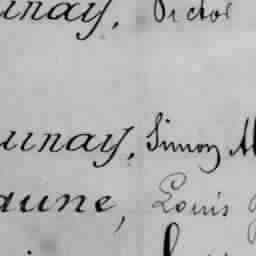 unay, Victor
unay, Simon M
aune, Louis